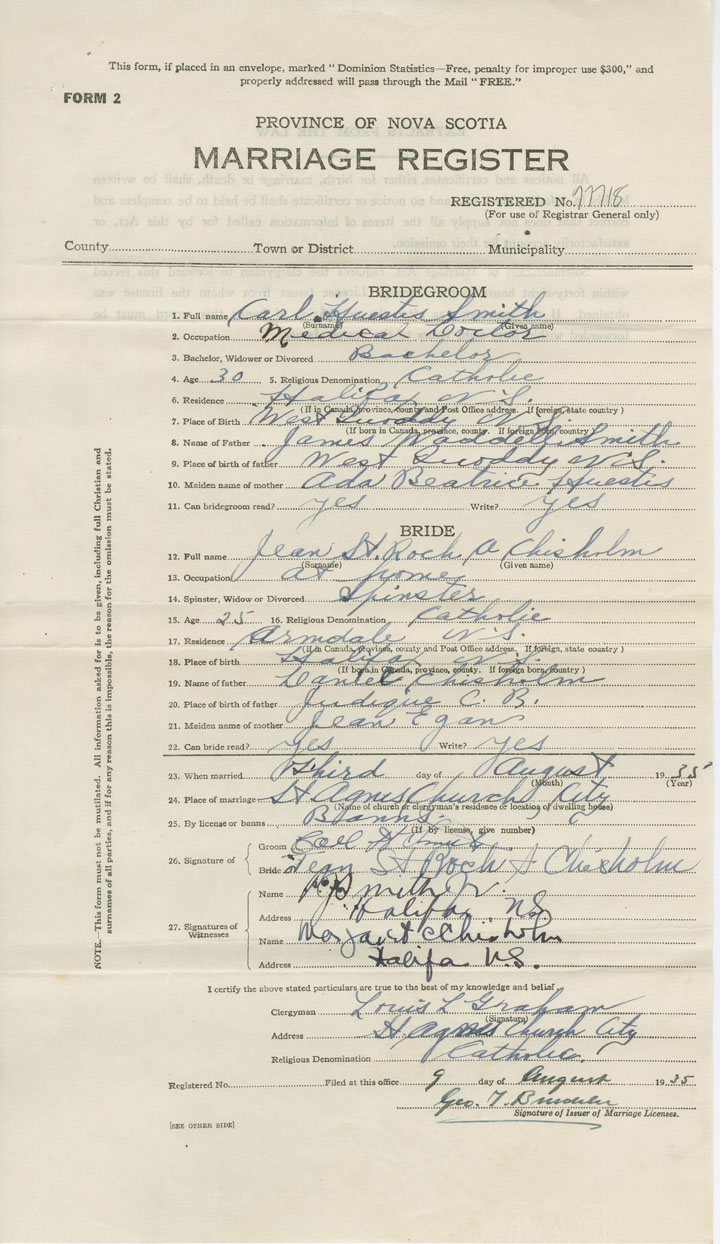 This form, if placed in an envelope, marked " Dominion Statistics—Free, penalty for improper use $300," and
properly addressed will pass through the Mail " FREE."
FORM 2
PROVINCE OF NOVA SCOTIA
MARRIAGE REGISTER
REGISTERED No. 77718
(For use of Registrar General only)
County Town or District Municipality
BRIDEGROOM
1. Full name Carl Huestis Smith
(Surname) (Given name)
2. Occupation Medical Doctor
3. Bachelor, Widower or Divorced Bachelor
4. Age 30 5. Religious Denomination Catholic
6. Residence Halifax N.S.
(If in Canada, province, county and Post Office address. If foreign, state country )
7. Place of Birth West Quoddy N.S.
(If born in Canada, province, county. If foreign born, country )
8. Name of Father James Waddell Smith
9. Place of birth of father West Quoddy N.S.
10. Maiden name of mother Ada Beatrice Huestis
11. Can bridegroom read? yes Write? yes
BRIDE
12. Full name Jean St. Roch A Chisholm
(Surname) (Given name)
13. Occupation at home
14. Spinster, Widow or Divorced Spinster
15. Age 25 16. Religious Denomination Catholic
17. Residence Armdale N.S.
(If in Canada, province, county and Post Office address. If foreign, state country )
18. Place of birth Halifax N.S.
(If born in Canada, province, county. If foreign born, country )
19. Name of father Daniel Chisholm
20. Place of birth of father Judique C. B.
21. Maiden name of mother Jean Egan
22. Can bride read? yes Write? yes
23. When married Third day of August 1935
(Month) (Year)
24. Place of marriage St Agnes Church, City
(Name of church or clergyman's residence or location of dwelling house)
25. By license or banns Banns.
(If by license, give number)
26. Signature of Groom Carl H Smith
Bride Jean St Roch A Chisholm
27. Signatures of Witnesses
Name Smith Jr.
Address Halifax NS
Name Margaret C Chisholm
Address Halifax N.S.
I certify the above stated particulars are true to the best of my knowledge and belief
Clergyman Louis L Graham
(Signature)
Address St Agnes Church City
Religious Denomination Catholic.
Registered No. Filed at this office 9 day of August 1935
Geo. T.
Signature of Issuer of Marriage Licenses.
[SEE OTHER SIDE]
NOTE.—This form must not be mutilated. All information asked for is to be given, including full Christian and
surnames of all parties, and if for any reason this is impossible, the reason for the omission must be stated.